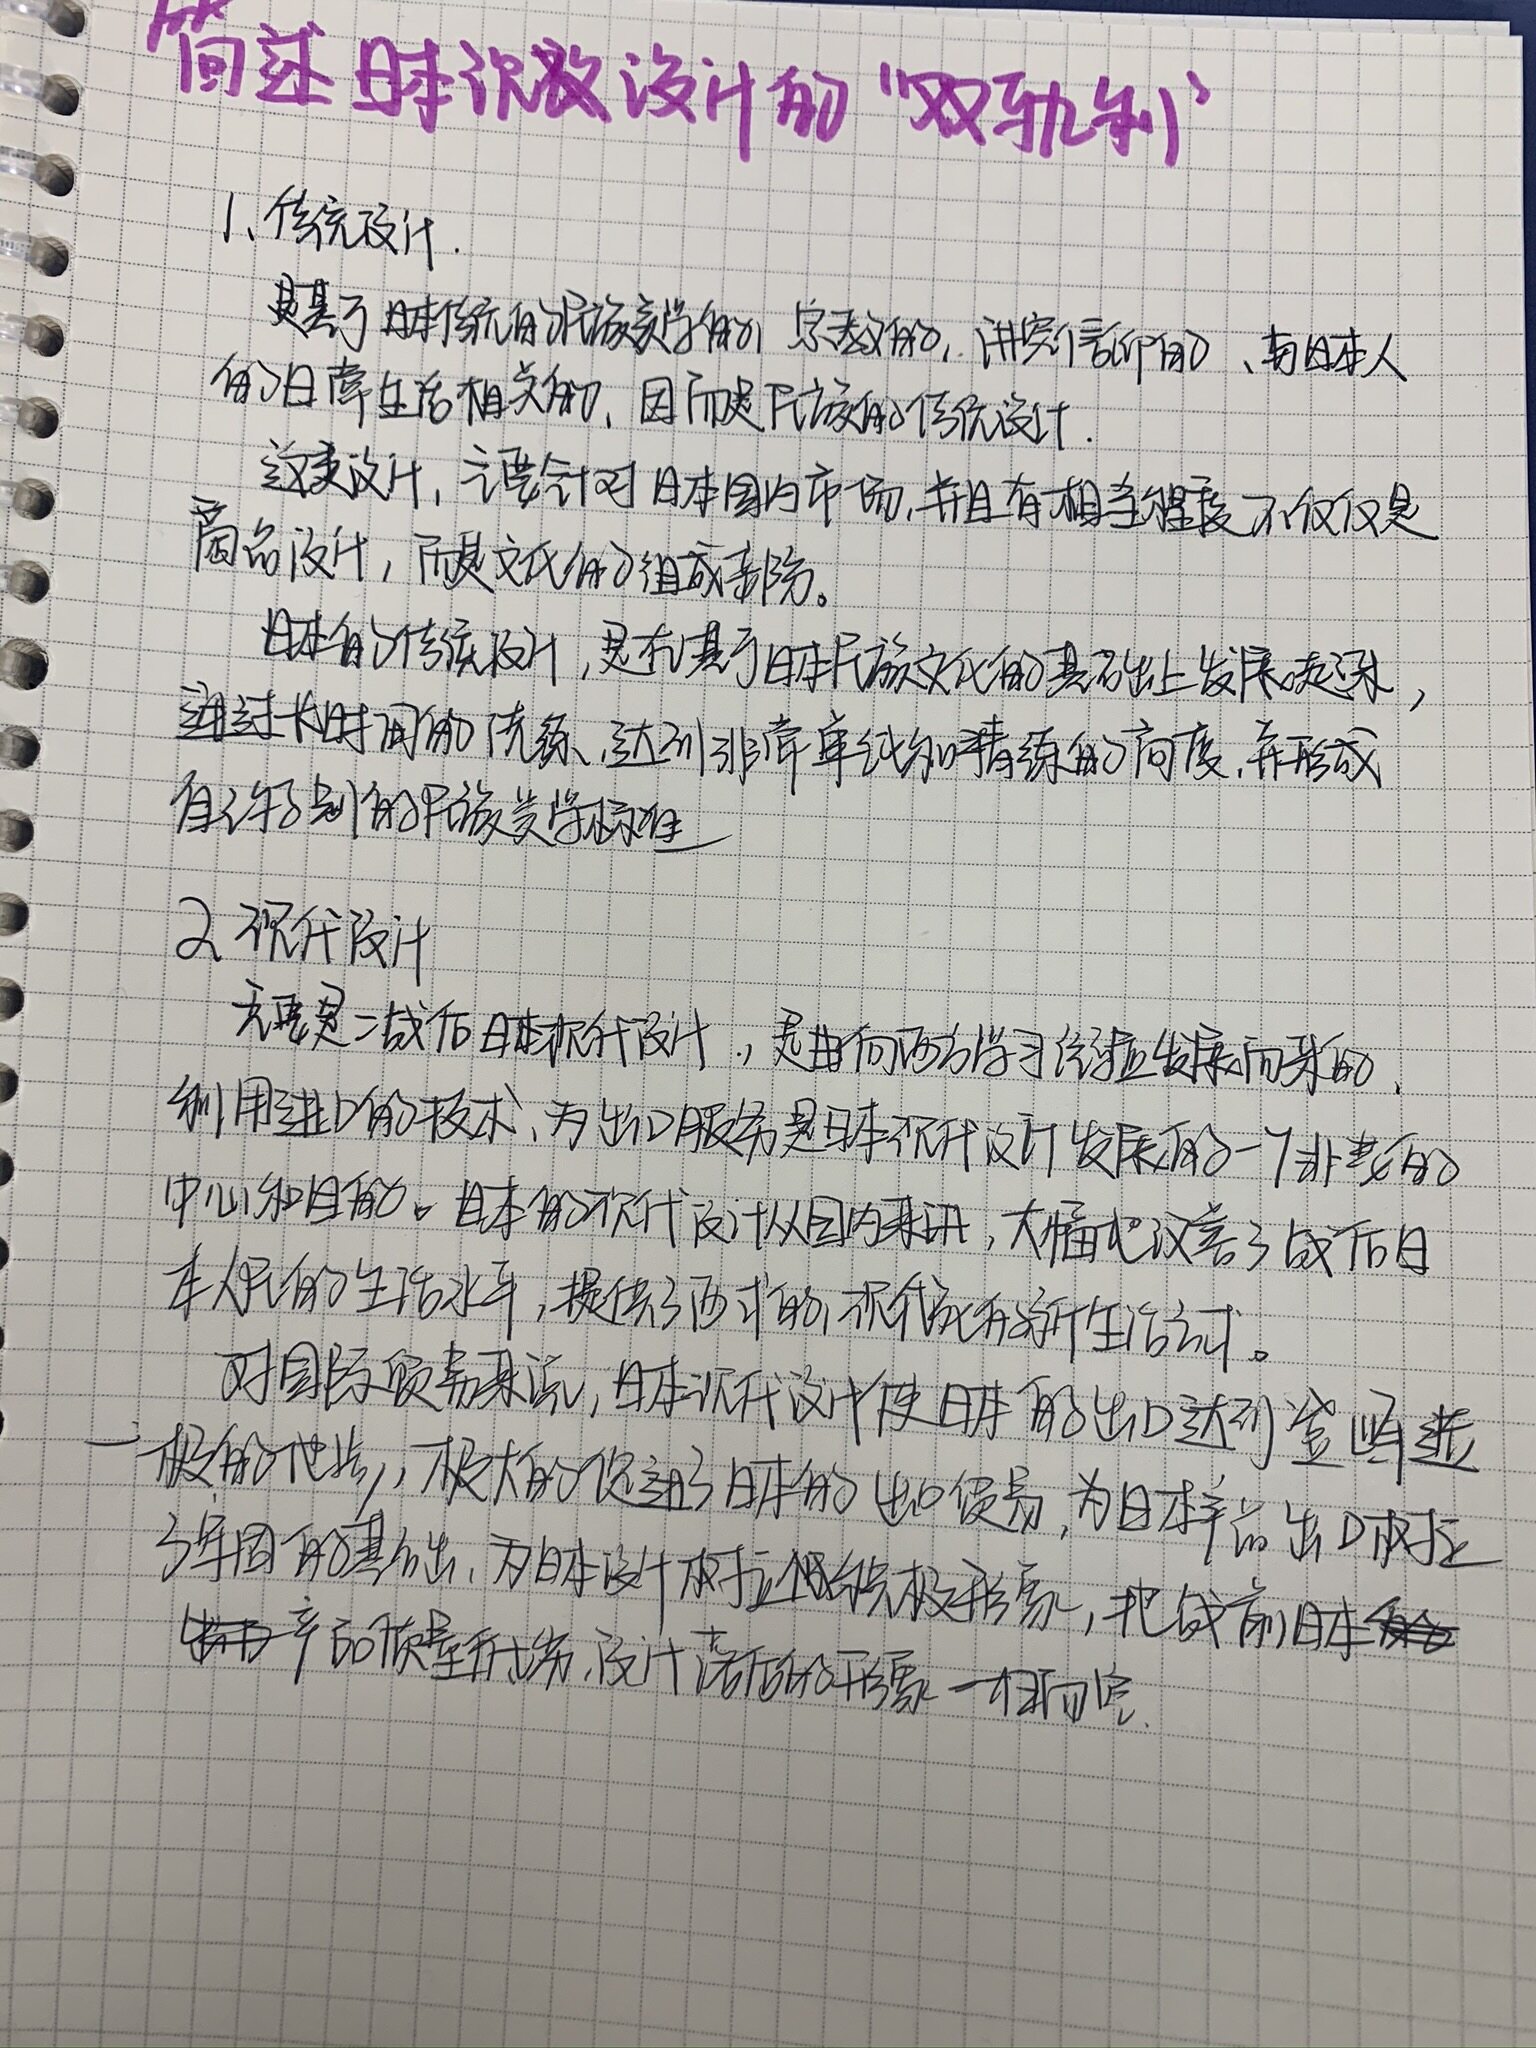 简述日本现代设计的“双轨制”
1、传统设计.
是基于日本传统的民族美学的, 宗教的, 讲究信仰的、与日本人
的日常生活相关的, 因而是民族的传统设计.
这类设计, 主要针对日本国内市场, 并且有相当程度不仅仅是
商品设计, 而是文化的组成部份。
日本的传统设计, 是在基于日本民族文化的基础上发展起来,
通过长时间的洗练、达到非常单纯和精练的高度, 并形成
自己特别的民族美学标准
2 现代设计
主要是二战后日本现代设计, 是由向西方学习经验发展而来的,
利用进口的技术、为出口服务是日本现代设计发展的一个非常的
中心和目的。日本的现代设计从国内来讯, 大幅地改善了战后日
本人民的生活水平, 提供了西式的, 现代化的新生活方式。
对国际贸易来说, 日本现代设计使日本的出口达到登峰造
极的地步, 极大的促进了日本的出口贸易, 为日本产品出口树立
了牢固的基础、为日本设计树立积极形象, 把战前日本
产品质量低劣、设计落后的形象一扫而空.